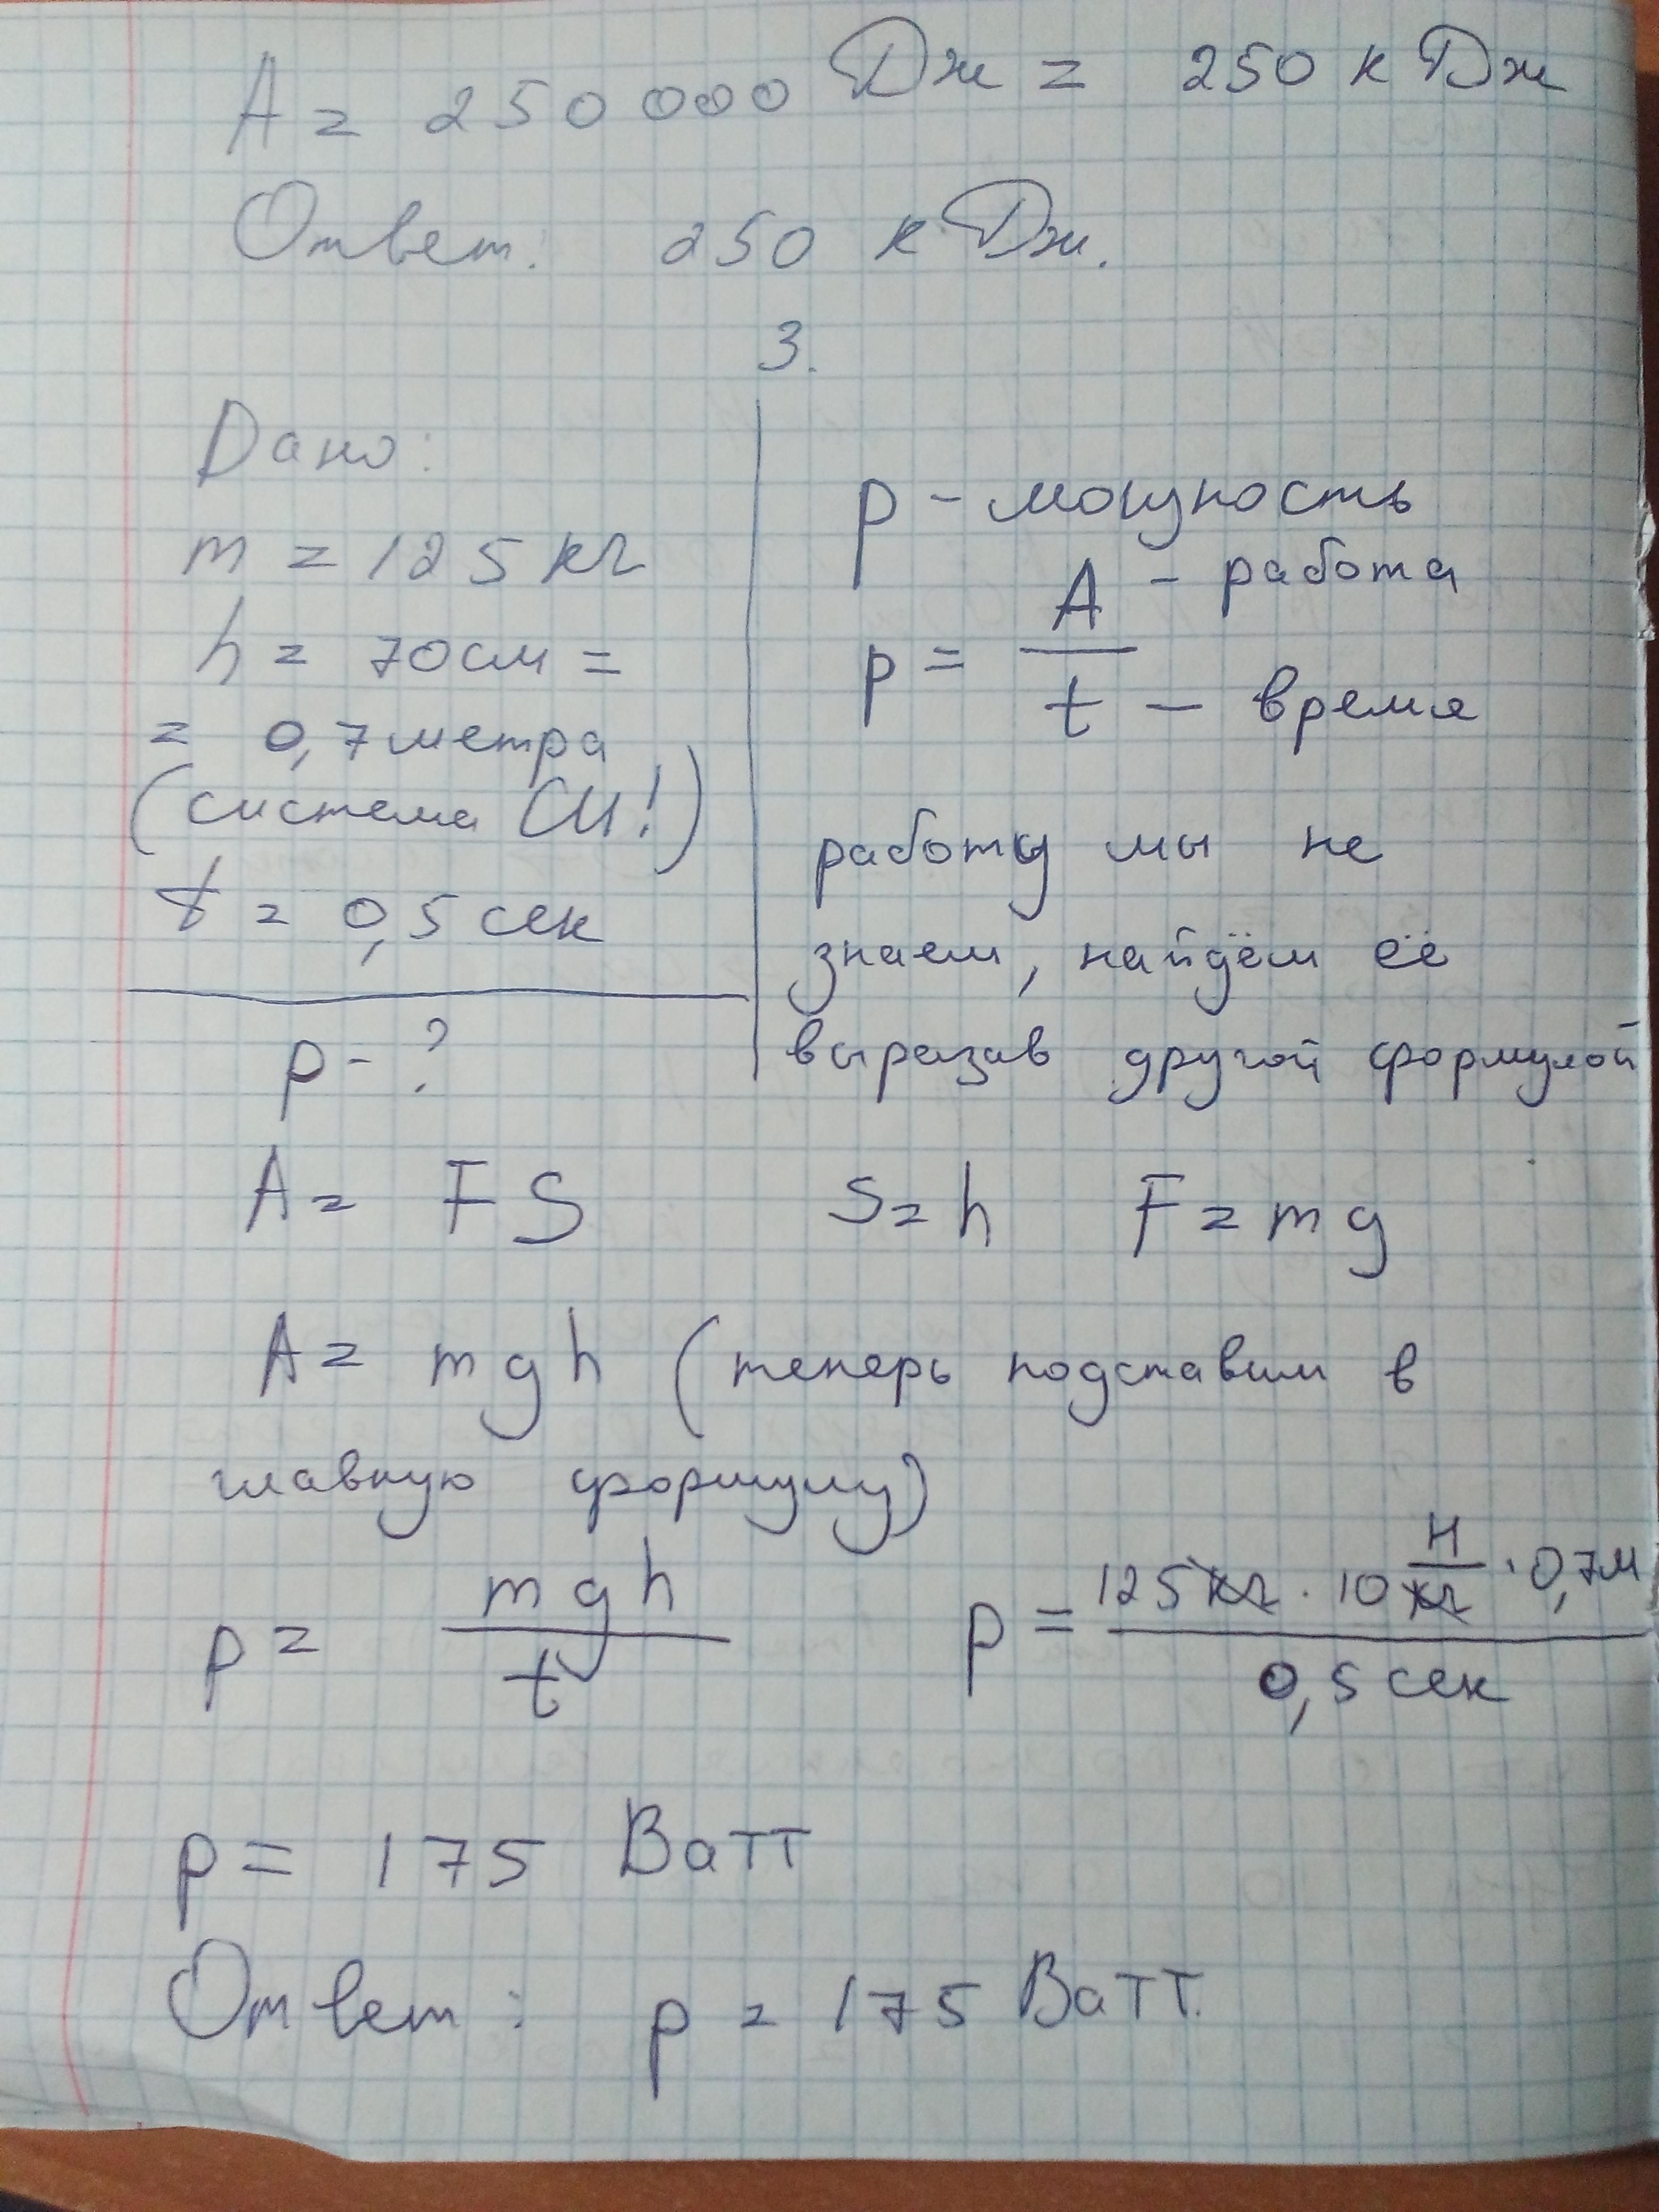 A = 250 000 Дж = 250 кДж
Ответ: 250 кДж.
3.
Дано:
m = 125 кг
h = 70 см =
= 0,7 метра
(система СИ!)
t = 0,5 сек
p - ?
p - мощность
p = A/t
A - работа
t - время
работу мы не
знаем, найдём её
выразив другой формулой
A = FS S = h F = mg
A = mgh (теперь подставим в
главную формулу)
p = mgh/t p = 125 кг · 10 Н/кг · 0,7 м / 0,5 сек
p = 175 Ватт
Ответ: p = 175 Ватт.